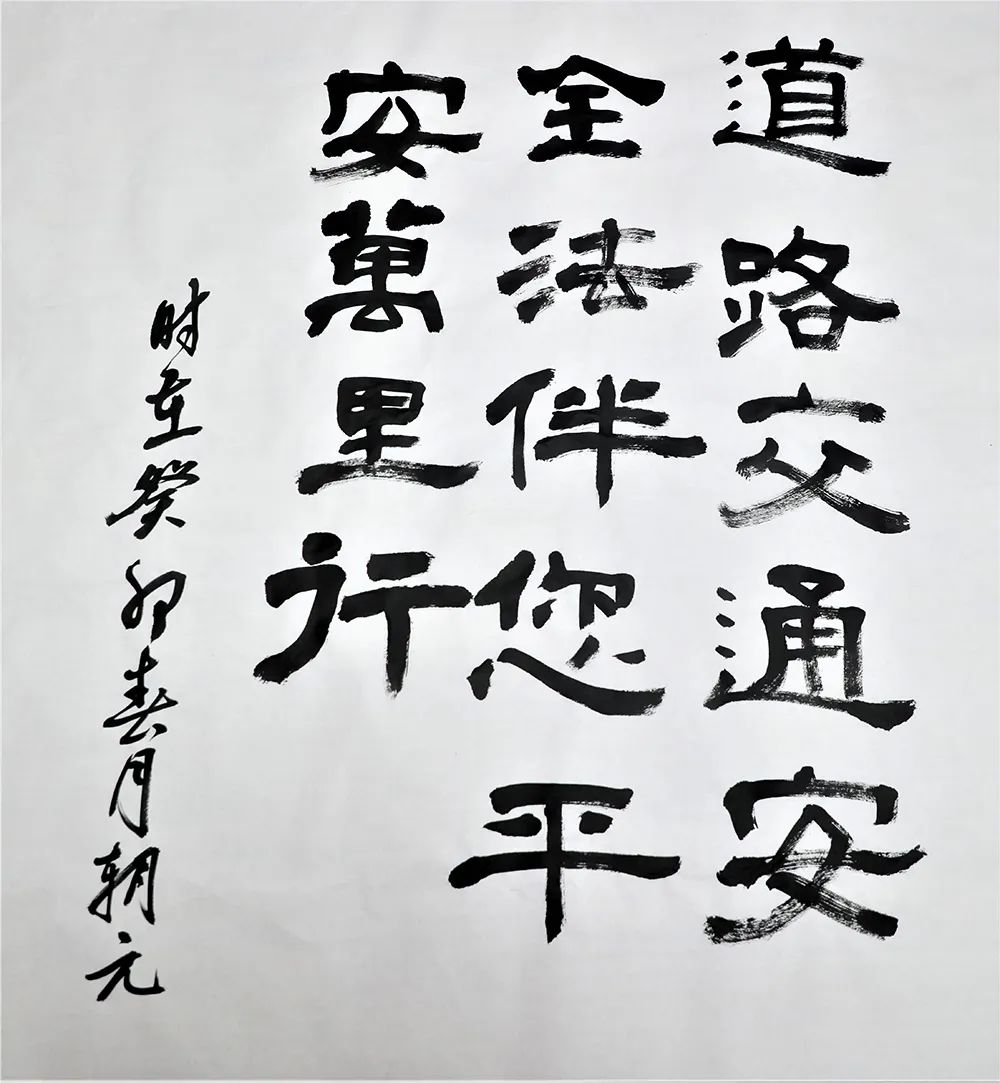 道路交通安
全法伴您平
安萬里行
时在癸卯春月朝元